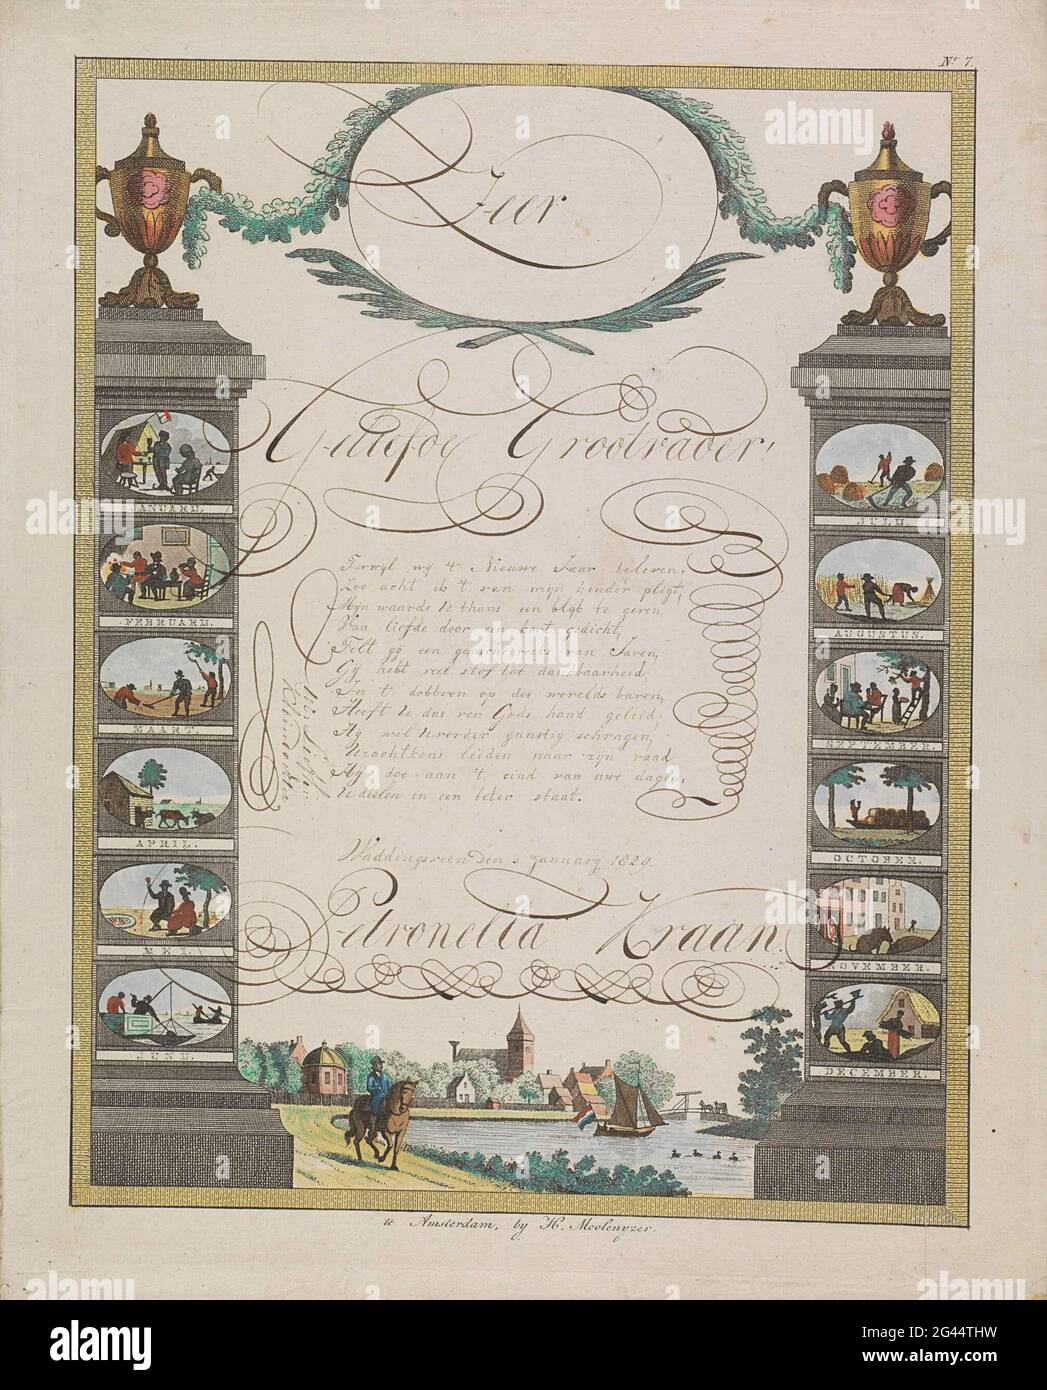 Nº 7.
Zeer
Geliefde Grootvader!
Terwyl wy 't Nieuwe Jaar beleven,
Zoo acht ik 't van myn kinder pligt,
Myn waarde U thans een blyk te geven
Van liefde door een kort gedicht,
Telt gy een gansche reeks van Jaren,
Gy hebt veel stof tot dankbaarheid
In 't dobbren op des werelds baren,
Heeft U dus ver Gods hand geleid;
Hy wil U verder gunstig schragen,
U zachtkens leiden naar zyn raad
Hy doe aan 't eind van uwe dagen,
U deelen in een beter staat.
Uw Liefh.
Kleindochter
Waddingsveen den 1 January 1820.
Petronella Kraan.
JANUARIJ.
FEBRUARIJ.
MAART.
APRIL.
MEI.
JUNIJ.
JULIJ.
AUGUSTUS.
SEPTEMBER.
OCTOBER.
NOVEMBER.
DECEMBER.
te Amsterdam, by H. Moolenyzer.
alamy
Image ID: 2G44THW
www.alamy.com